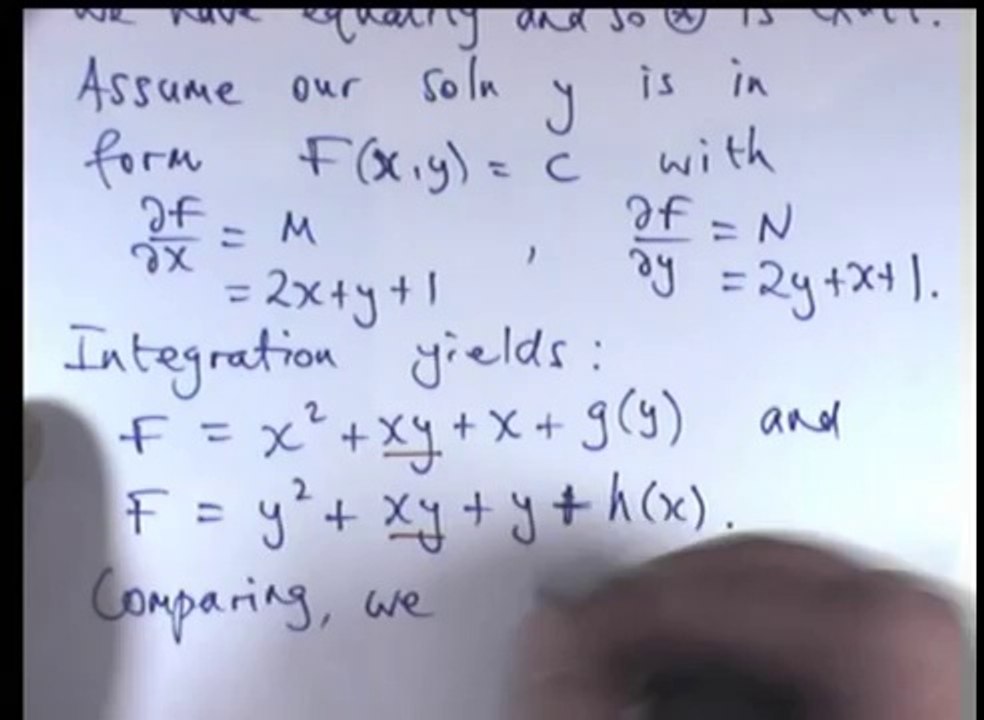 we have equality and so (*) is exact.
Assume our soln y is in
form F(x,y) = c with
∂F/∂x = M , ∂F/∂y = N
= 2x+y+1 = 2y+x+1.
Integration yields:
F = x² + xy + x + g(y) and
F = y² + xy + y + h(x).
Comparing, we